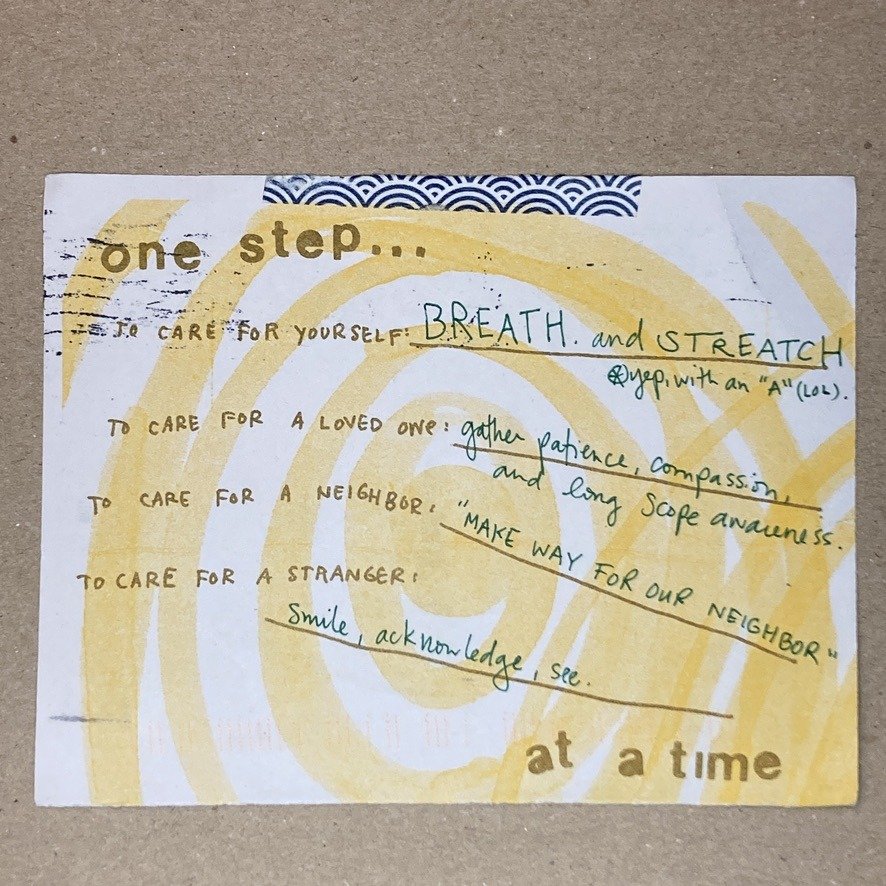 one step...
TO CARE FOR YOURSELF: BREATH. and STREATCH
⊛yep, with an "A" (LOL).
TO CARE FOR A LOVED ONE: gather patience, compassion,
and long scope awareness.
TO CARE FOR A NEIGHBOR: "MAKE WAY FOR OUR NEIGHBOR"
TO CARE FOR A STRANGER:
Smile, acknowledge, see.
at a time